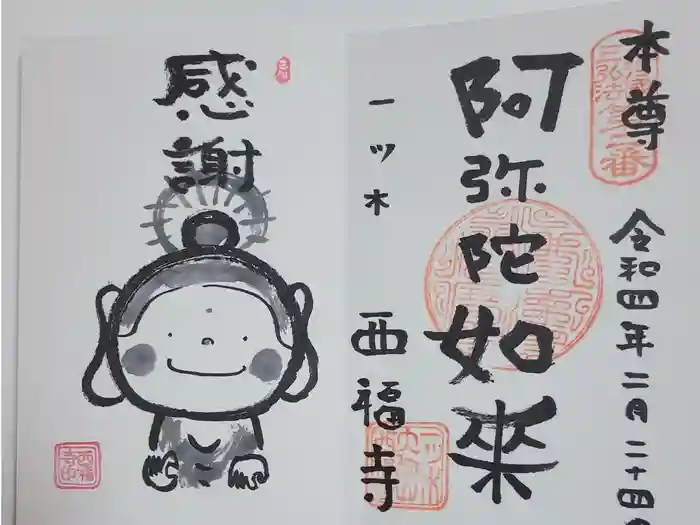 本尊
令和四年二月二十四日
阿弥陀如来
一ツ木
西福寺
感謝